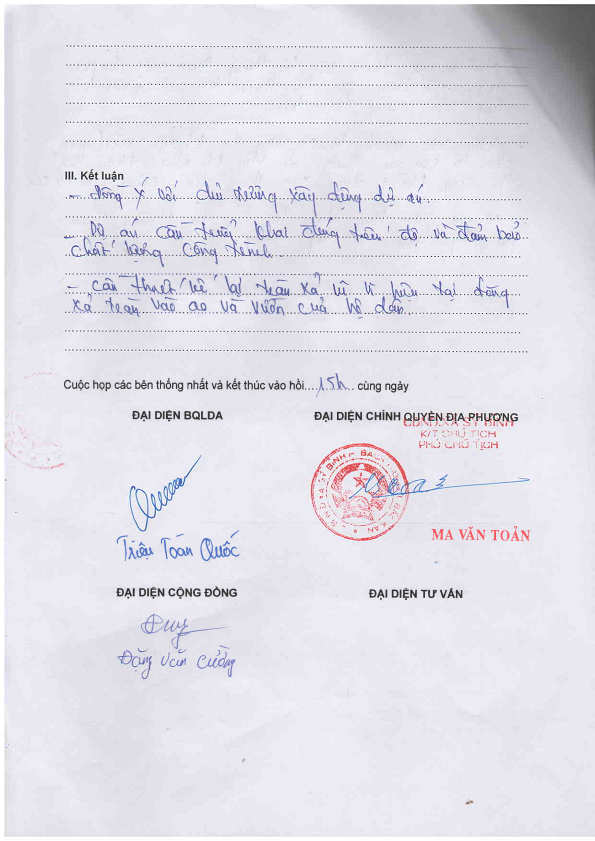 III. Kết luận
- Đồng ý với chủ trương xây dựng dự án.
- Dự án cần triển khai đúng tiến độ và đảm bảo
chất lượng công trình.
- Cần thiết kế lại tràn xả lũ vì hiện tại đang
xả tràn vào ao và vườn của hộ dân.
Cuộc họp các bên thống nhất và kết thúc vào hồi....15h... cùng ngày
ĐẠI DIỆN BQLDA
ĐẠI DIỆN CHÍNH QUYỀN ĐỊA PHƯƠNG
UBND XÃ SỸ BÌNH
K/T CHỦ TỊCH
PHÓ CHỦ TỊCH
MA VĂN TOẢN
Triệu Toán Quốc
ĐẠI DIỆN CỘNG ĐỒNG
ĐẠI DIỆN TƯ VẤN
Đặng Văn Cường